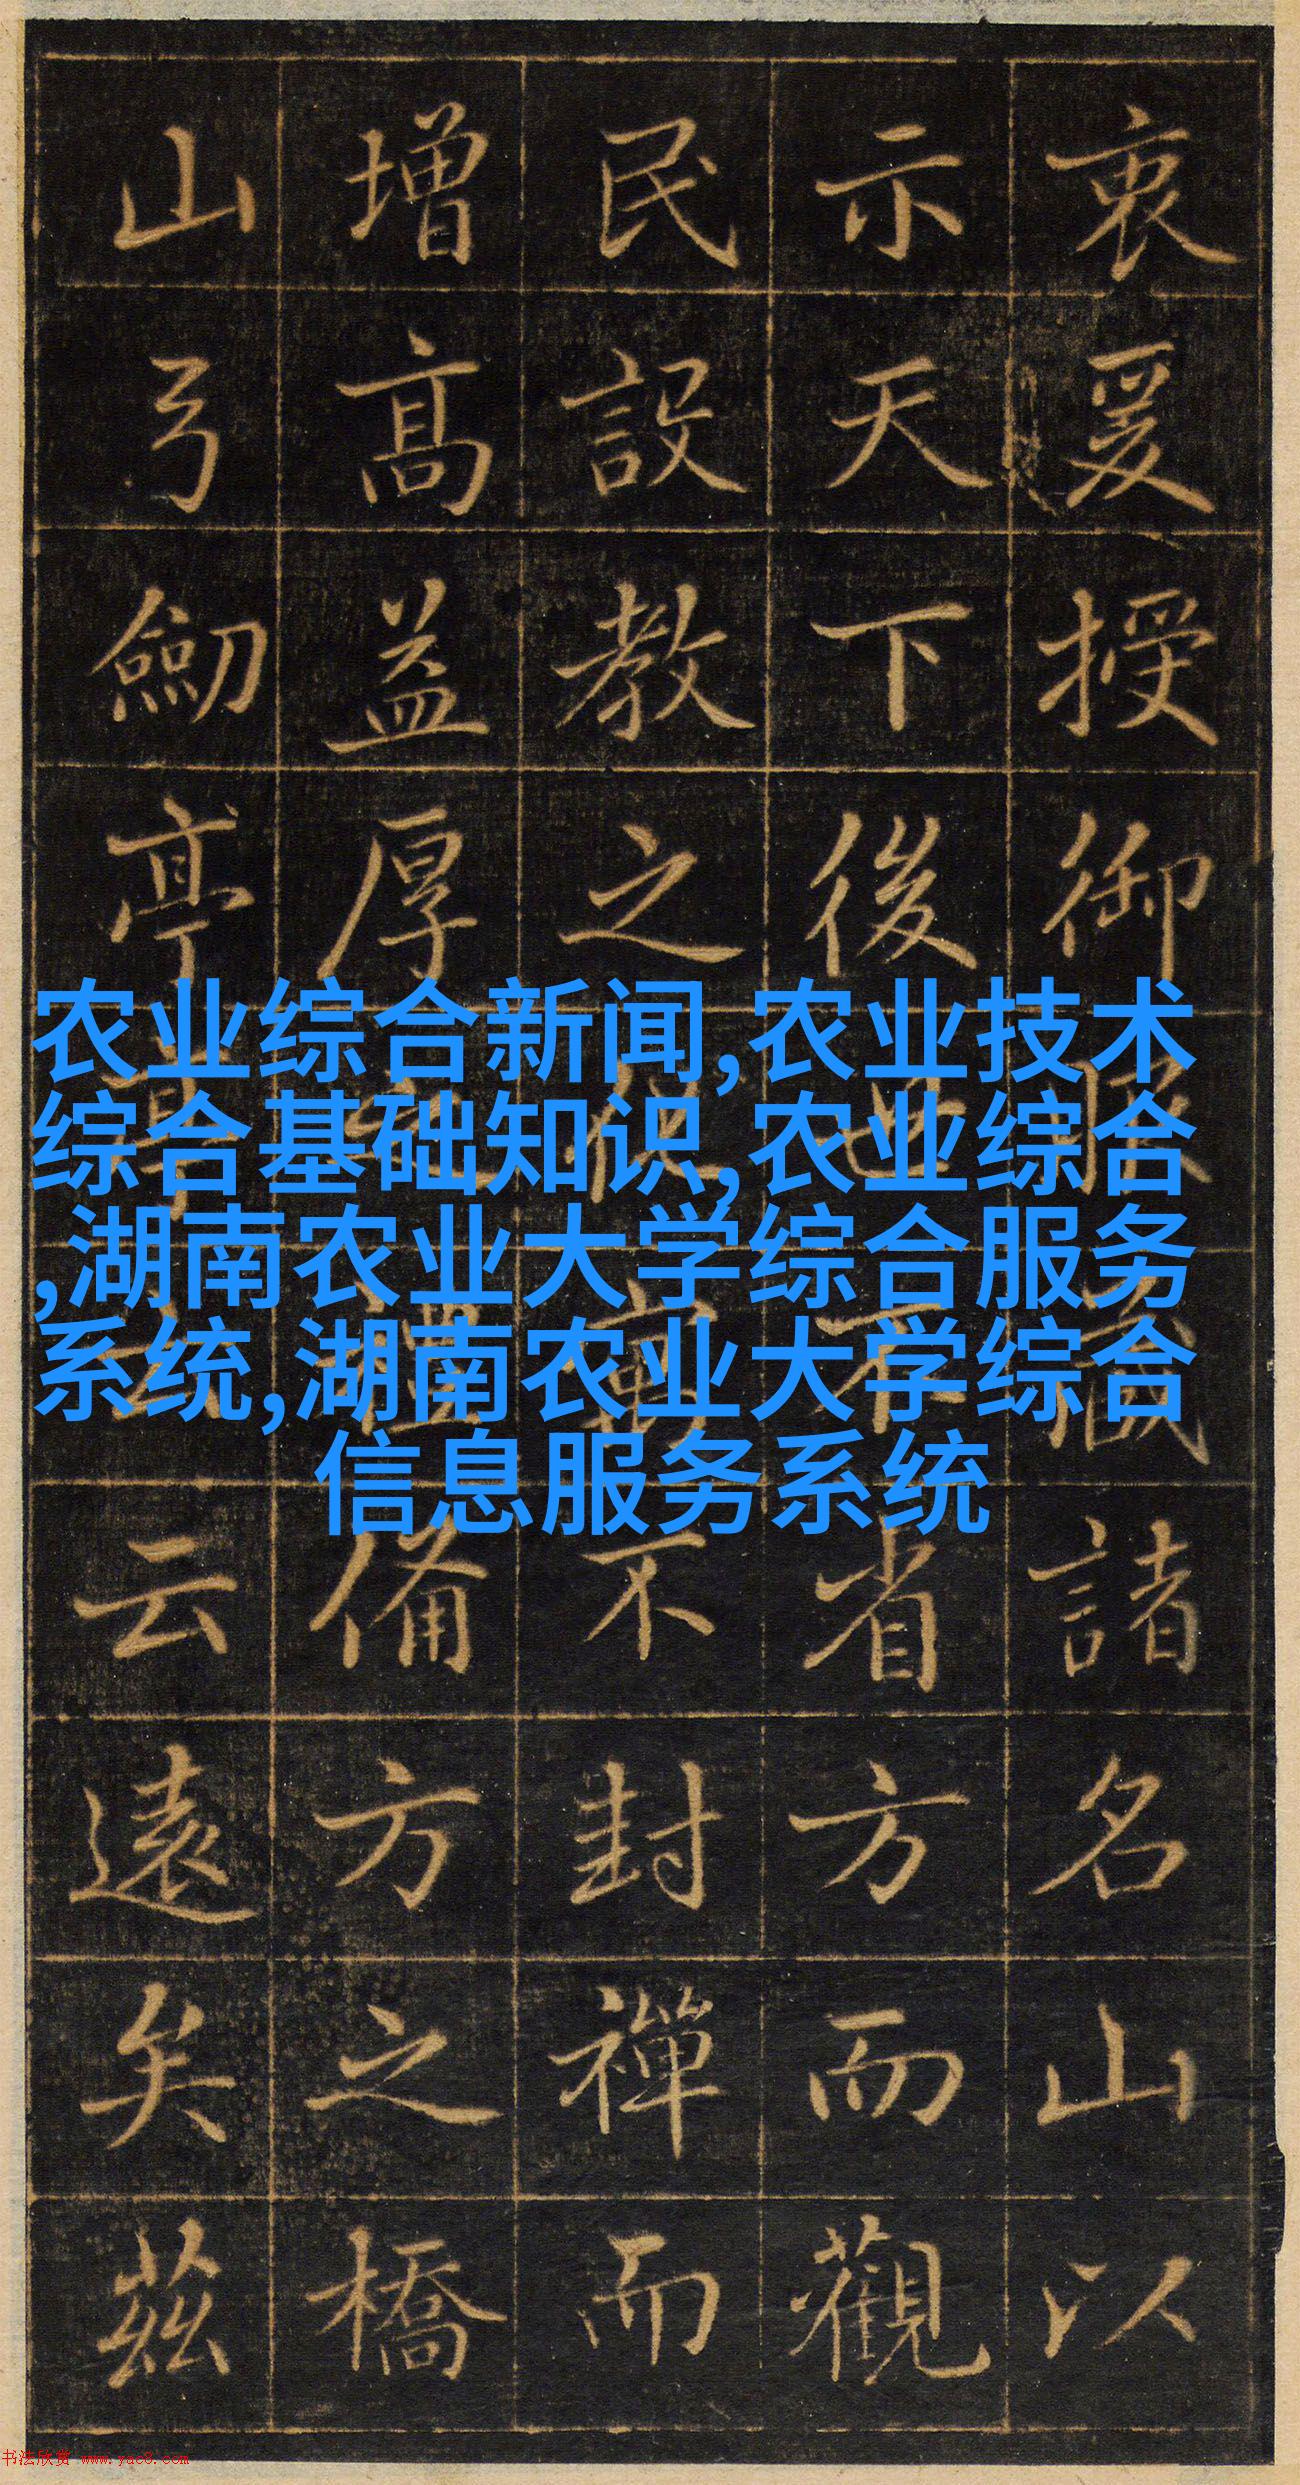 衷爰授御服藏諸名山以
示天下後世不省方而觀
民設教之不封禪而
增高益厚之禮備方之橋
山弓劒亭云遠矣茲
农业综合新闻,农业技术
综合基础知识,农业综合
,湖南农业大学综合服务
系统,湖南农业大学综合
信息服务系统
书法欣赏 www.yac8.com